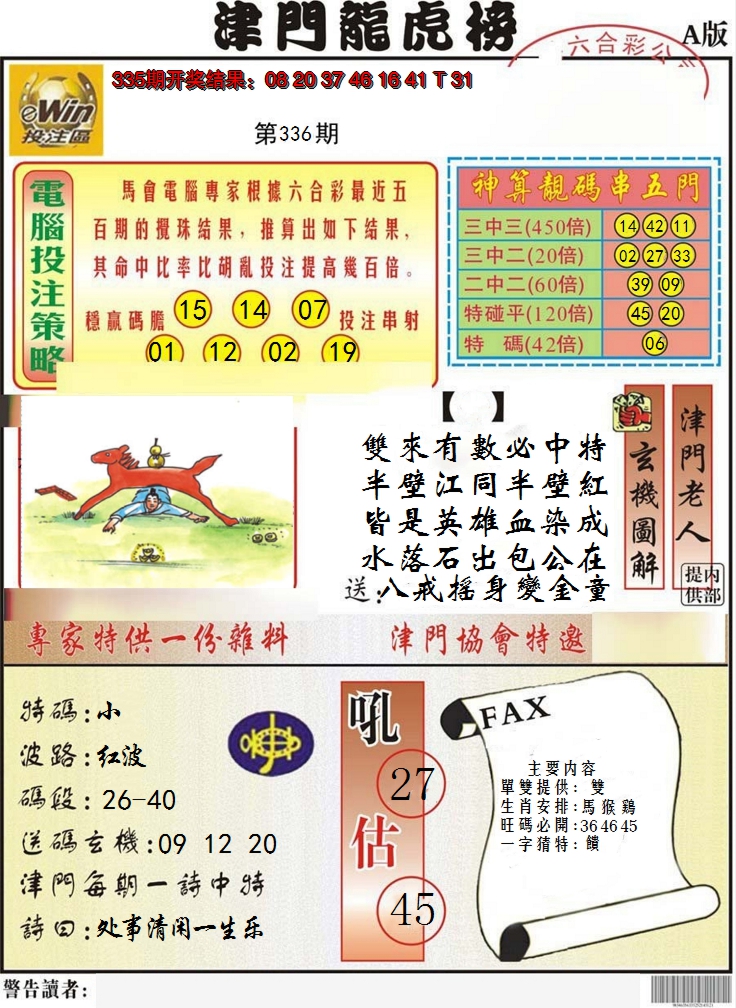 津門龍虎榜
A版
六合彩公
eWin
投注區
335期开奖结果：08 20 37 46 16 41 T 31
第336期
電腦投注策略
馬會電腦專家根據六合彩最近五
百期的攪珠结果，推算出如下结果，
其命中比率比胡亂投注提高幾百倍。
穩赢碼膽 15 14 07 投注串射
01 12 02 19
神算靚碼串五門
三中三(450倍) 14 42 11
三中二(20倍) 02 27 33
二中二(60倍) 39 09
特碰平(120倍) 45 20
特 碼(42倍) 06
【 】
雙來有數必中特
半壁江同半壁紅
皆是英雄血染成
水落石出包公在
送:八戒摇身變金童
玄機圖解
津門老人
内部提供
專家特供一份雜料
津門協會特邀
特碼:小
波路:红波
碼段:26-40
送碼玄機:09 12 20
津門每期一詩中特
詩曰:处事清闲一生乐
吼
27
估
45
FAX
主要内容
單雙提供: 雙
生肖安排:馬猴鷄
旺碼必開:36 46 45
一字猜特: 饋
警告讀者: